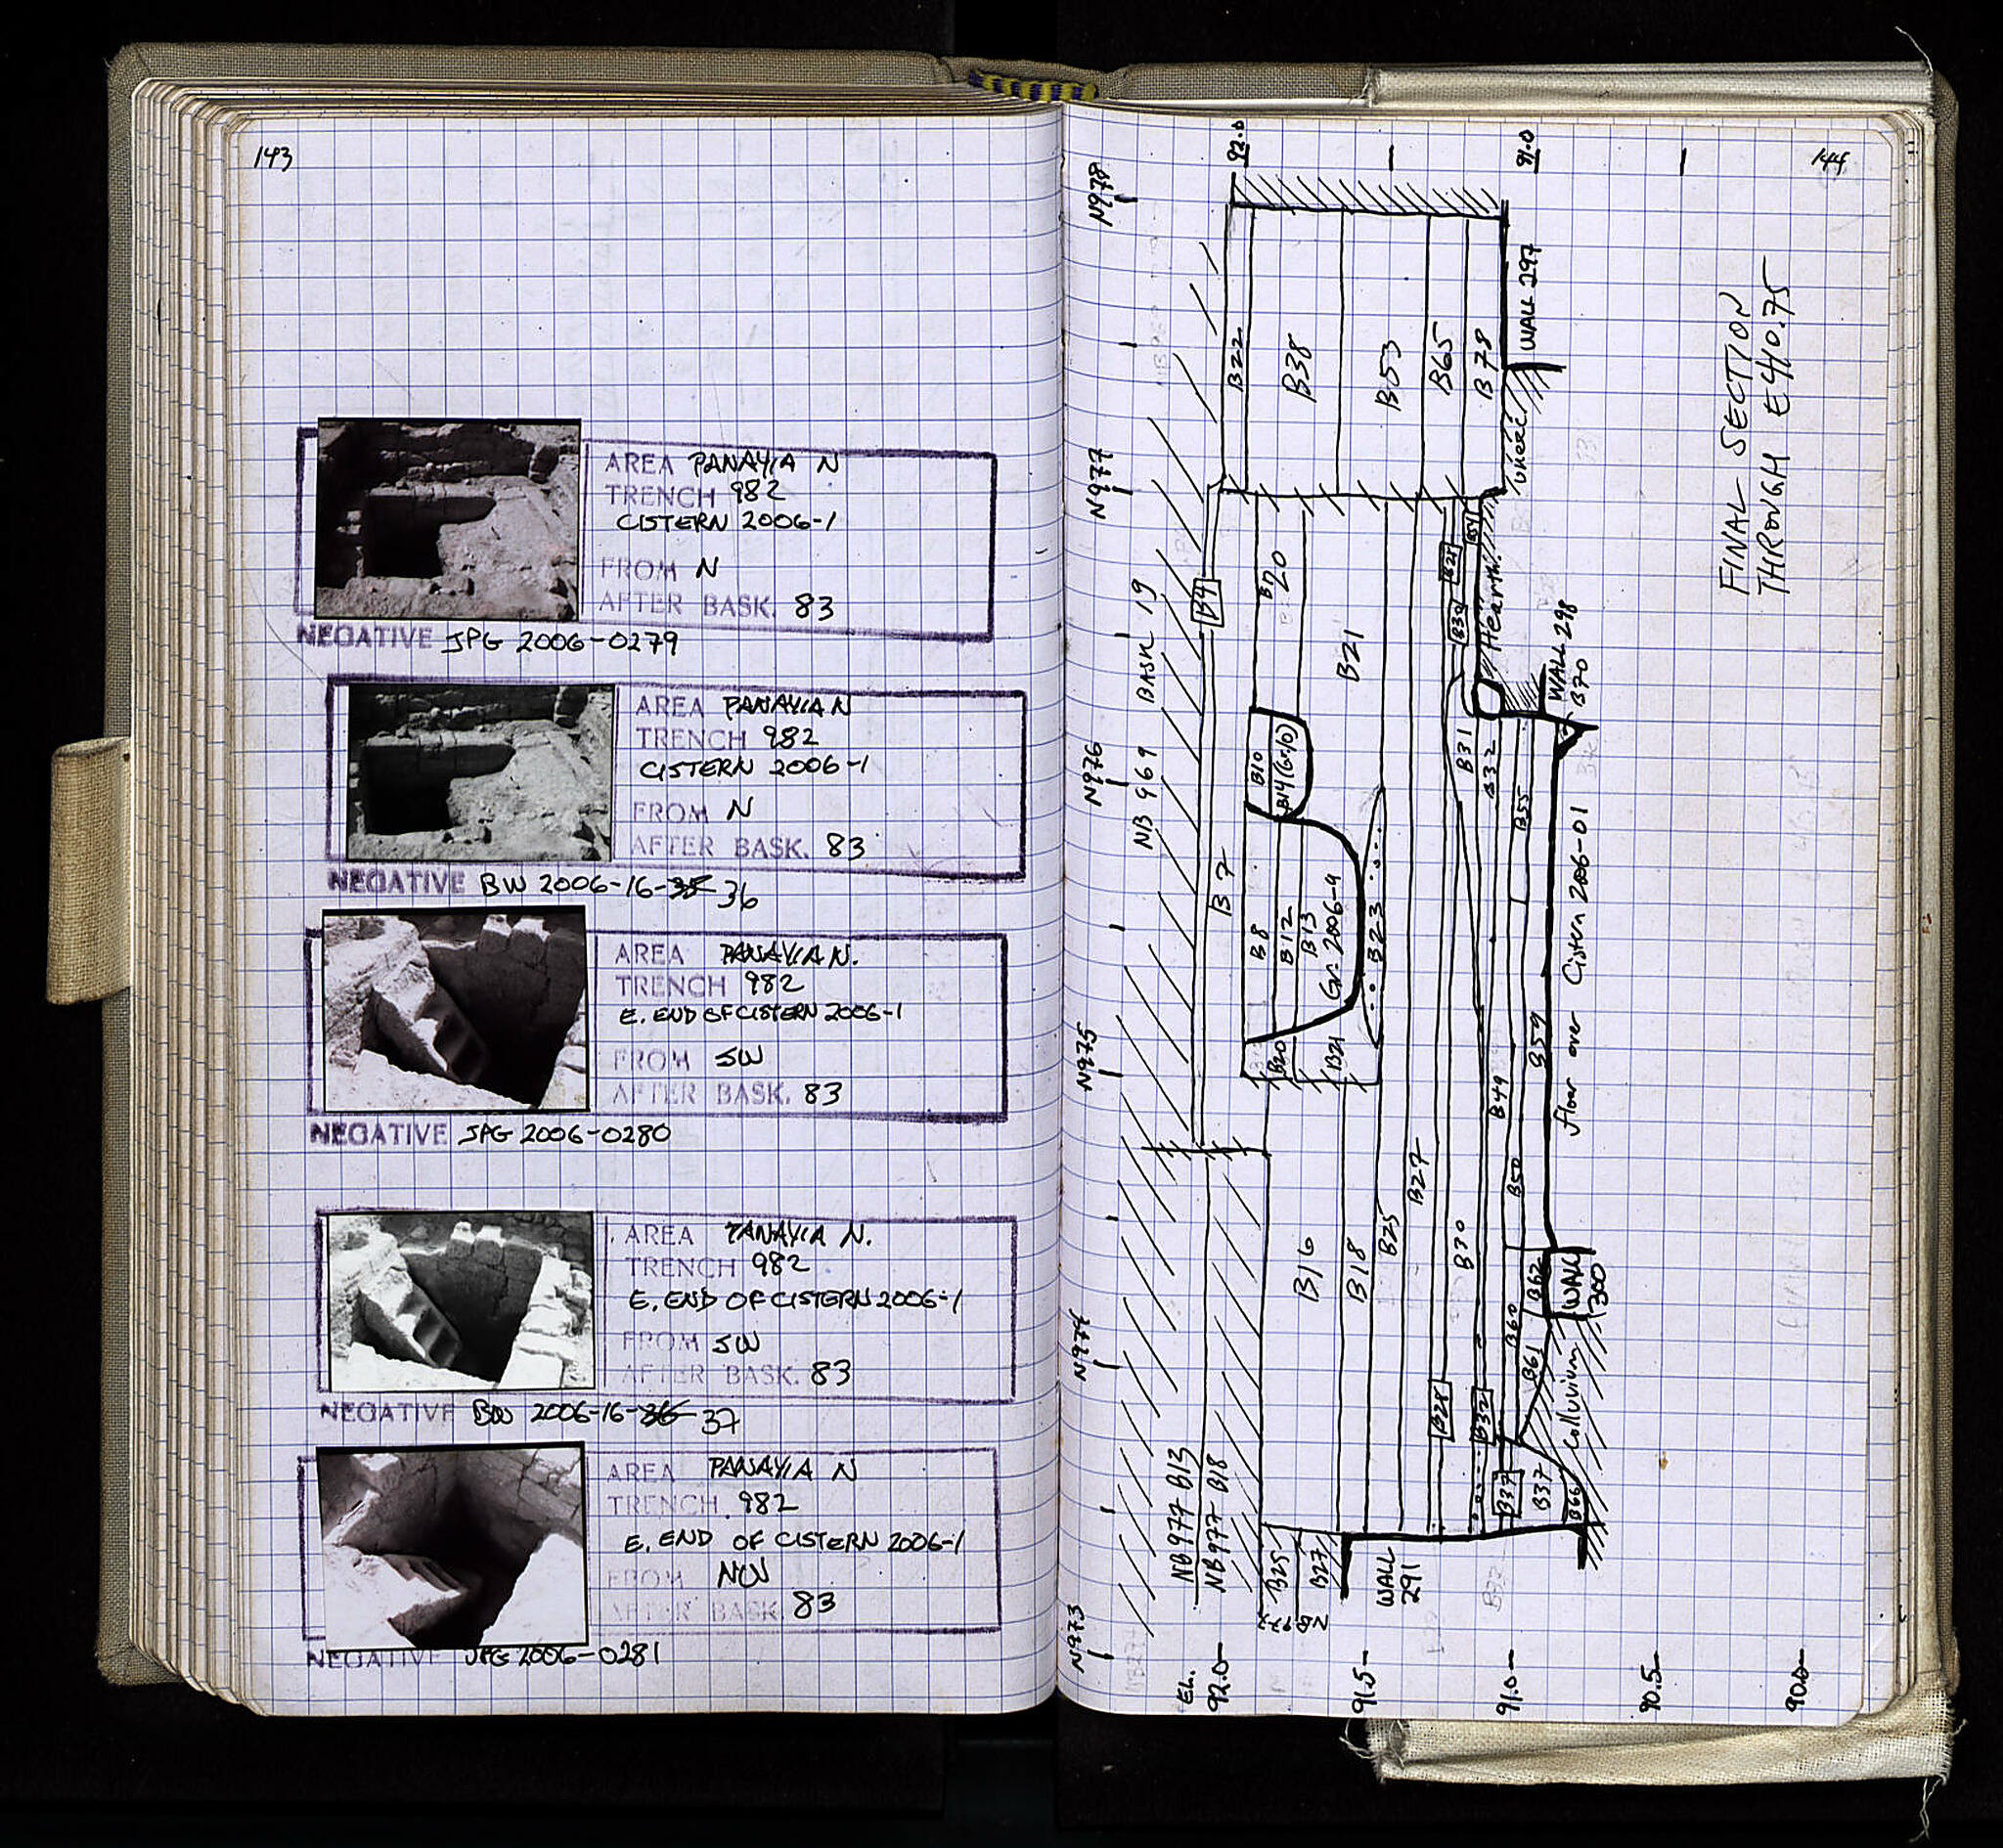 143
AREA PANAYIA N
TRENCH 982
CISTERN 2006-1
FROM N
AFTER BASK. 83
NEGATIVE JPG 2006-0279
AREA PANAYIA N
TRENCH 982
CISTERN 2006-1
FROM N
AFTER BASK. 83
NEGATIVE BW 2006-16-35 36
AREA PANAYIA N.
TRENCH 982
E. END OF CISTERN 2006-1
FROM SW
AFTER BASK. 83
NEGATIVE JPG 2006-0280
AREA PANAYIA N.
TRENCH 982
E. END OF CISTERN 2006-1
FROM SW
AFTER BASK. 83
NEGATIVE BW 2006-16-36 37
AREA PANAYIA N
TRENCH 982
E. END OF CISTERN 2006-1
FROM NW
AFTER BASK 83
NEGATIVE JPG 2006-0281
144
N973
N974
N975
N976
N977
N978
NB 969 BASK 19
NB 977 B13
NB 977 B18
EL.
92.0
91.5
91.0
90.5
90.0
92.0
91.0
B4
B7
B22
B38
B53
B65
B78
WALL 297
B8
B12
B13
Gr. 2006-4
B10
B14 (Gr.10)
B20
B20
B21
B20
B21
B23
B16
B18
B25
B27
B28
B30
B28
B30
B31
B32
B32
B37
B37
B66
B49
B50
B55
B59
B60
B61
B62
Hearth
WALL 298
B70
Floor over Cistern 2006-01
WALL 300
Colluvium
B25
B27
NB 977
WALL 291
FINAL SECTION
THROUGH E410.75